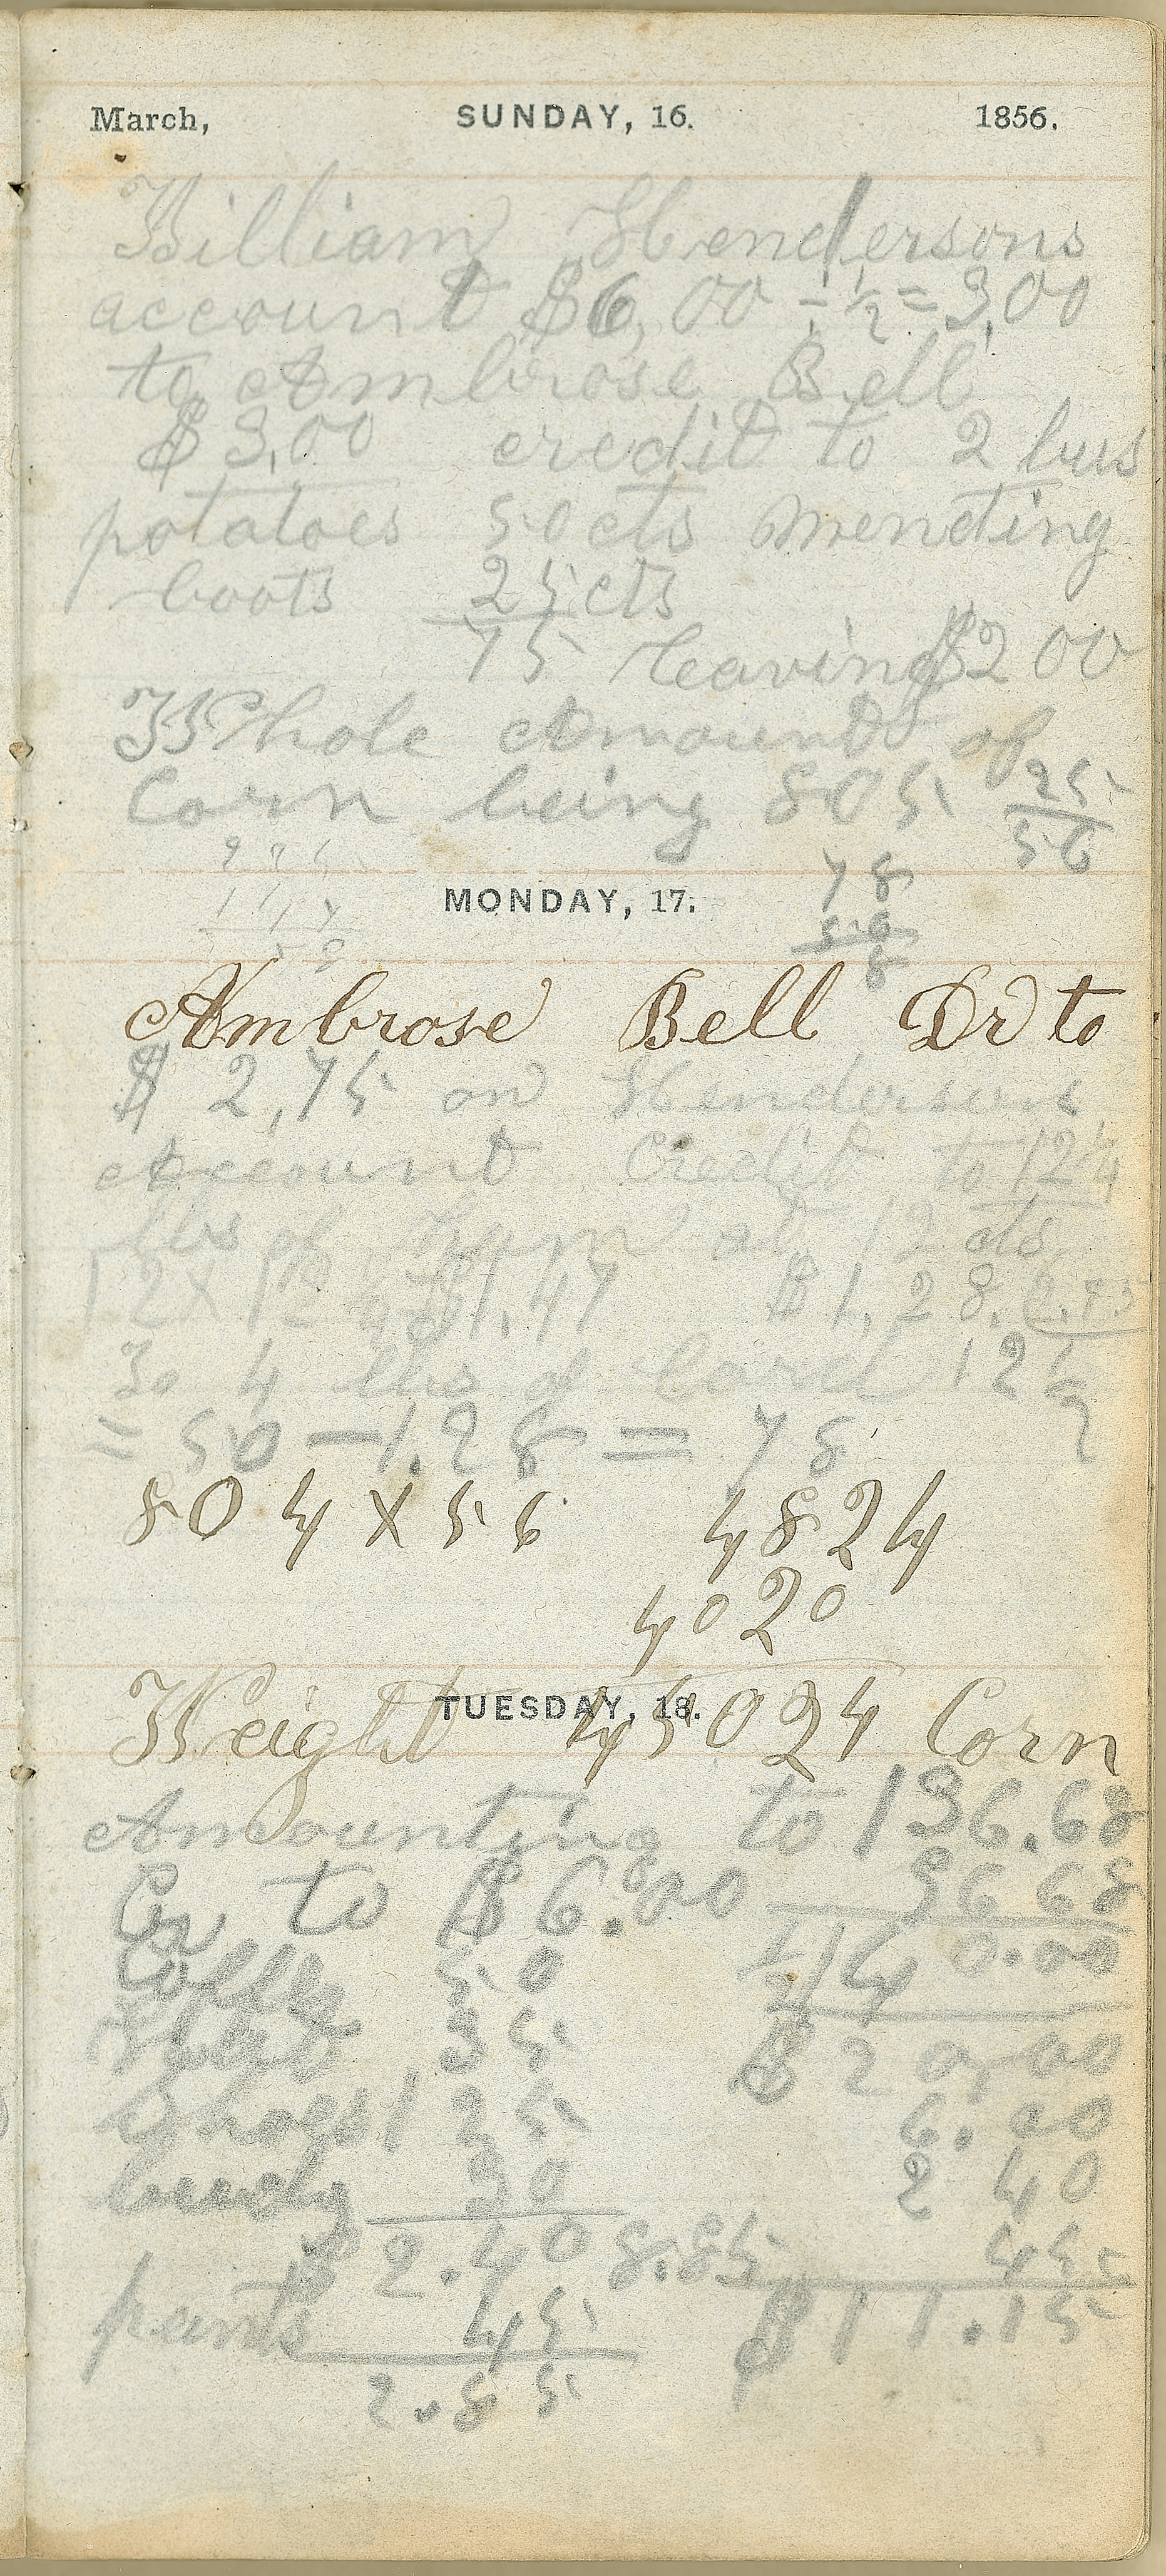 March, SUNDAY, 16. 1856.
William Hendersons
account $6,00 ÷ 1/2 = 3,00
to Ambrose Bell
$3,00 credit to 2 bus
potatoes 50 cts mending
boots 25 cts
75 leaving $2 00
Whole Amount of
Corn being 805 25/56
78
MONDAY, 17.
Ambrose Bell Dr to
$ 2,75 on Hendersons
Account Credit to 12 1/4
lbs of ham at 12 cts
$1,47 $1,28.
To 4 lbs of lard 12 1/2
= 50 — 1.28 = 78
804 X 56 4824
4020
TUESDAY, 18.
Weight 45024 Corn
Amounting to 136.68
Cr to $6.00 36 68
Coffee 50 1/2 14 0.00
35 $ 2 0,00
shoes 1 25 6.00
30 2 40
2.40 8.85 45
pants 45 $11.15
2.85